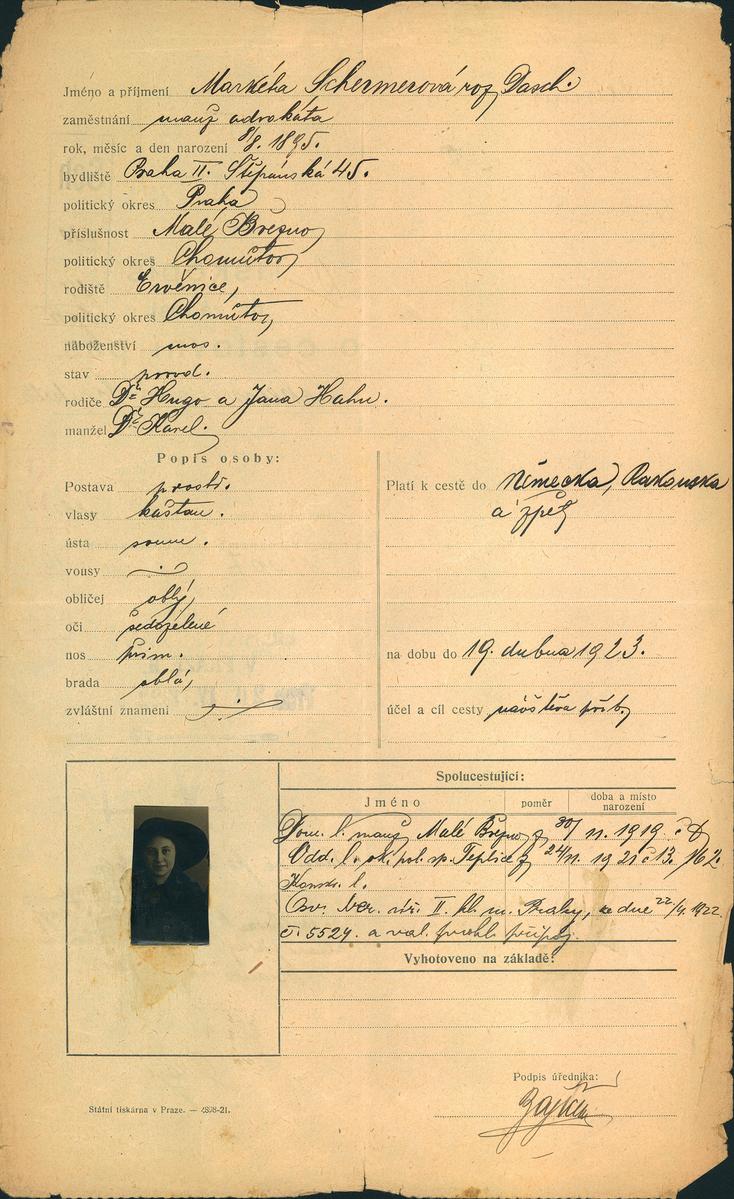 Jméno a příjmení Markéta Schermerová roz. Dasch.
zaměstnání manž advokáta
rok, měsíc a den narození 8/8. 1895.
bydliště Praha II. Štěpánská 45.
politický okres Praha
příslušnost Malé Březno
politický okres Chomutov,
rodiště Ervěnice,
politický okres Chomutov,
náboženství mos.
stav provd.
rodiče Dr. Hugo a Jana Hahn.
manžel Dr. Karel.
Popis osoby:
Postava prostř.
vlasy kaštan.
ústa soum.
vousy
obličej oblý,
oči šedozelené
nos přim.
brada oblá,
zvláštní znamení
Platí k cestě do Německa, Rakouska
a zpět
na dobu do 19. dubna 1923.
účel a cíl cesty návštěva příb.
Spolucestující:
Jméno poměr doba a místo narození
Dom. l. manž Malé Březno z 30/ 11. 1919 č 8
Odd. l. ok. pol. sp. Teplice z 24/11. 1921 č 13. 162.
Konskr. l.
Osv. ber. II. m. Prahy, ze dne 22/4. 1922.
č. 5524. a
Vyhotoveno na základě:
Podpis úředníka:
Státní tiskárna v Praze. — 2898-21.